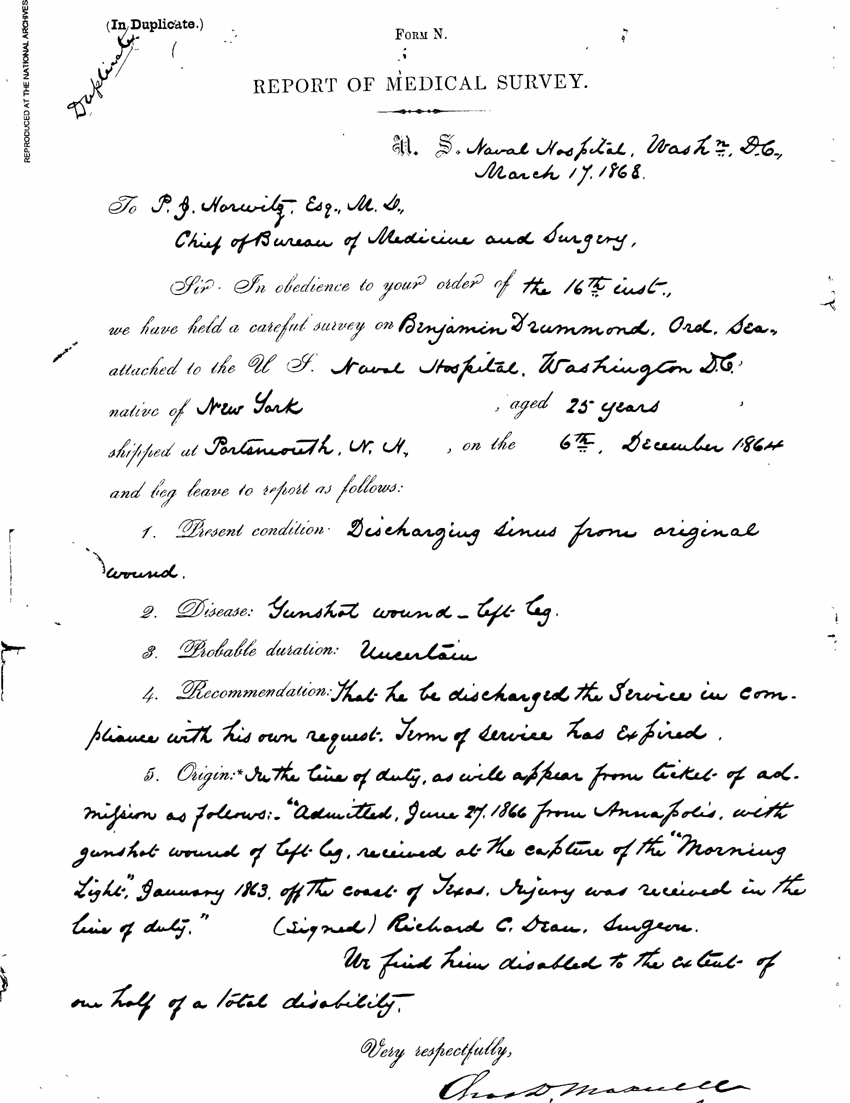 (In Duplicate.)
Duplicate
REPRODUCED AT THE NATIONAL ARCHIVES
FORM N.
REPORT OF MEDICAL SURVEY.
U. S. Naval Hospital, Washn, D.C.,
March 17, 1868.
To P. J. Horwitz, Esq., M. D.,
Chief of Bureau of Medicine and Surgery,
Sir: In obedience to your order of the 16th inst.,
we have held a careful survey on Benjamin Drummond, Ord. Sea.,
attached to the U. S. Naval Hospital, Washington D.C.
native of New York , aged 25 years ,
shipped at Portsmouth, N. H., , on the 6th, December 1864
and beg leave to report as follows:
1. Present condition: Discharging sinus from original
wound.
2. Disease: Gunshot wound – left leg.
3. Probable duration: Uncertain
4. Recommendation: That he be discharged the Service in com-
pliance with his own request. Term of service has expired.
5. Origin:* In the line of duty, as will appear from ticket of ad-
mission as follows:- "Admitted, June 27, 1866 from Annapolis, with
gunshot wound of left leg, received at the capture of the "Morning
Light", January 1863, off the coast of Texas. Injury was received in the
line of duty." (Signed) Richard C. Dean, Surgeon.
We find him disabled to the extent of
one half of a total disability.
Very respectfully,
Chas D. Maxwell